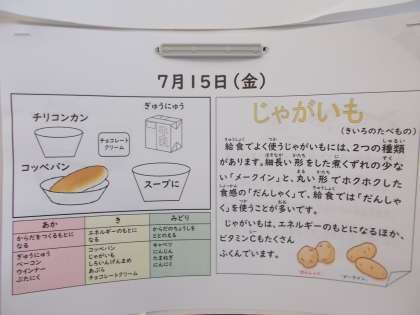 7月15日(金)
チリコンカン
ぎゅうにゅう
チョコレート
クリーム
コッペパン
スープに
じゃがいも
(きいろのたべもの)
給食でよく使うじゃがいもには、2つの種類
があります。細長い形をした煮くずれの少な
い「メークイン」と、丸い形でホクホクした
食感の「だんしゃく」で、給食では「だんしゃ
く」を使うことが多いです。
じゃがいもは、エネルギーのもとになるほか、
ビタミンCもたくさん
ふくんでいます。
あか
き
みどり
からだをつくるもとに
なる
エネルギーのもとに
なる
からだのちょうしを
ととのえる
ぎゅうにゅう
ベーコン
ウインナー
ぶたにく
コッペパン
じゃがいも
しろいんげんまめ
あぶら
チョコレートクリーム
キャベツ
にんじん
たまねぎ
にんにく